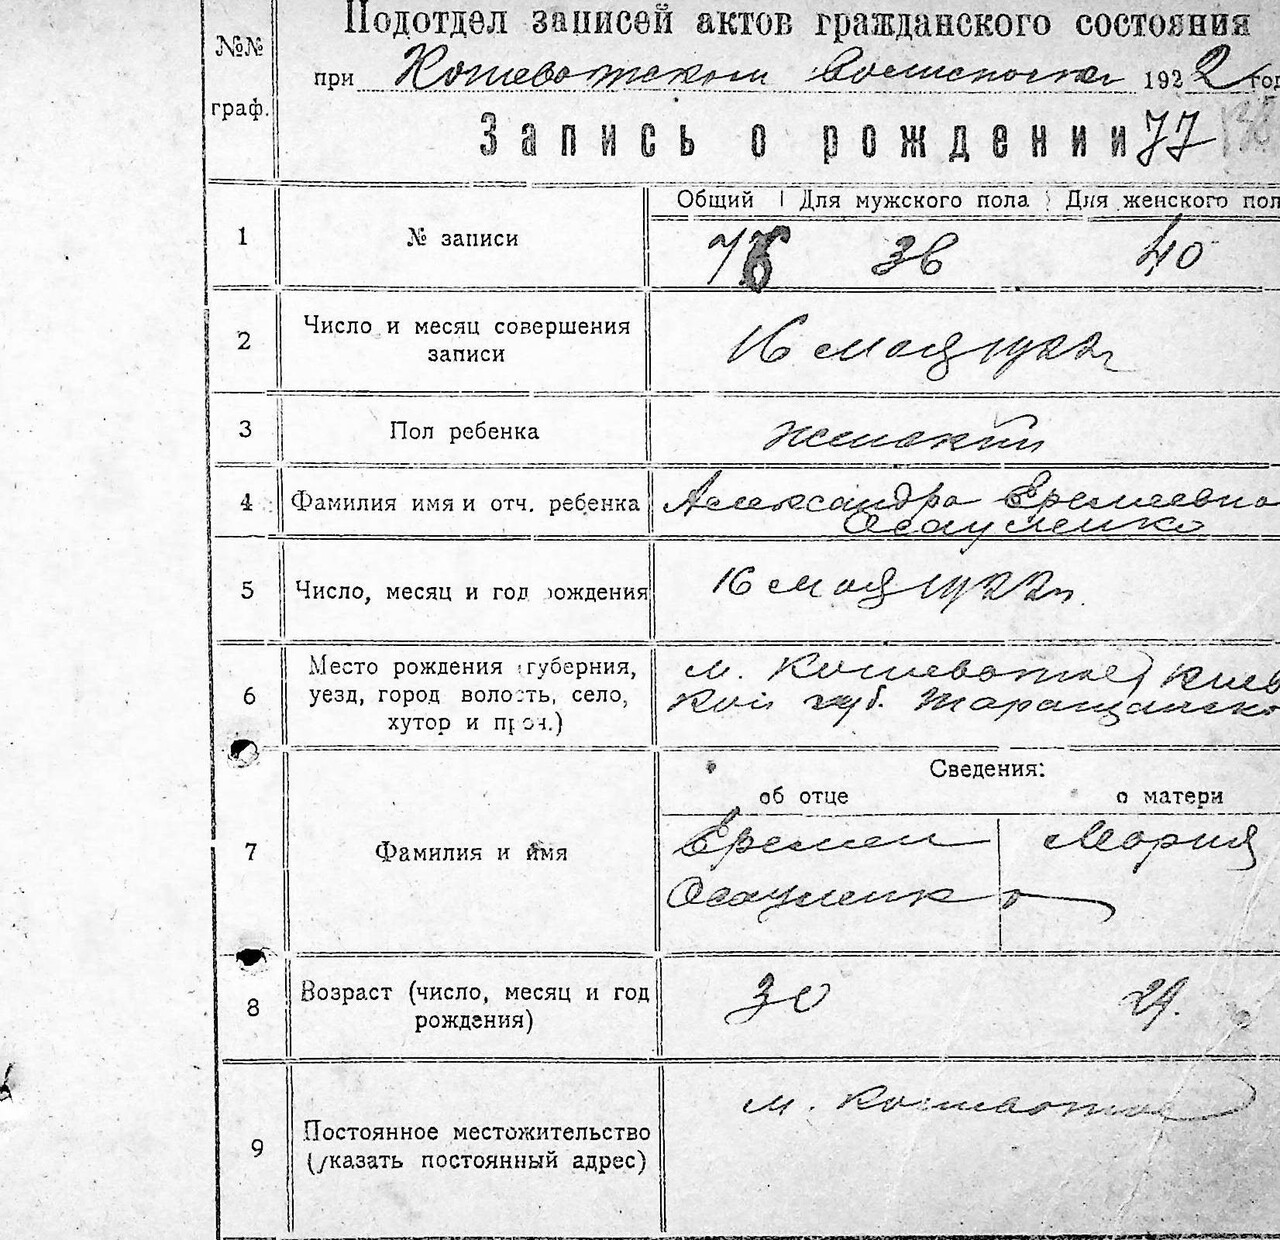 Подотдел записей актов гражданского состояния
№№ граф.
при Кошеватском волисполкоме 1922 год
Запись о рождении 77
Общий Для мужского пола Для женского пол
1 № записи 76 36 40
2 Число и месяц совершения записи 16 мая 1922 г
3 Пол ребенка женский
4 Фамилия имя и отч. ребенка Александра Еремеевна
Осауленко
5 Число, месяц и год рождения 16 мая 1922 г.
6 Место рождения (губерния, м. Кошеватое, Киев
уезд, город волость, село, кой губ. Таращанско
хутор и проч.)
Сведения:
об отце о матери
7 Фамилия и имя Еремей Мария
Осауленко
8 Возраст (число, месяц и год рождения) 30
9 Постоянное местожительство м. Кошеватое
(указать постоянный адрес)